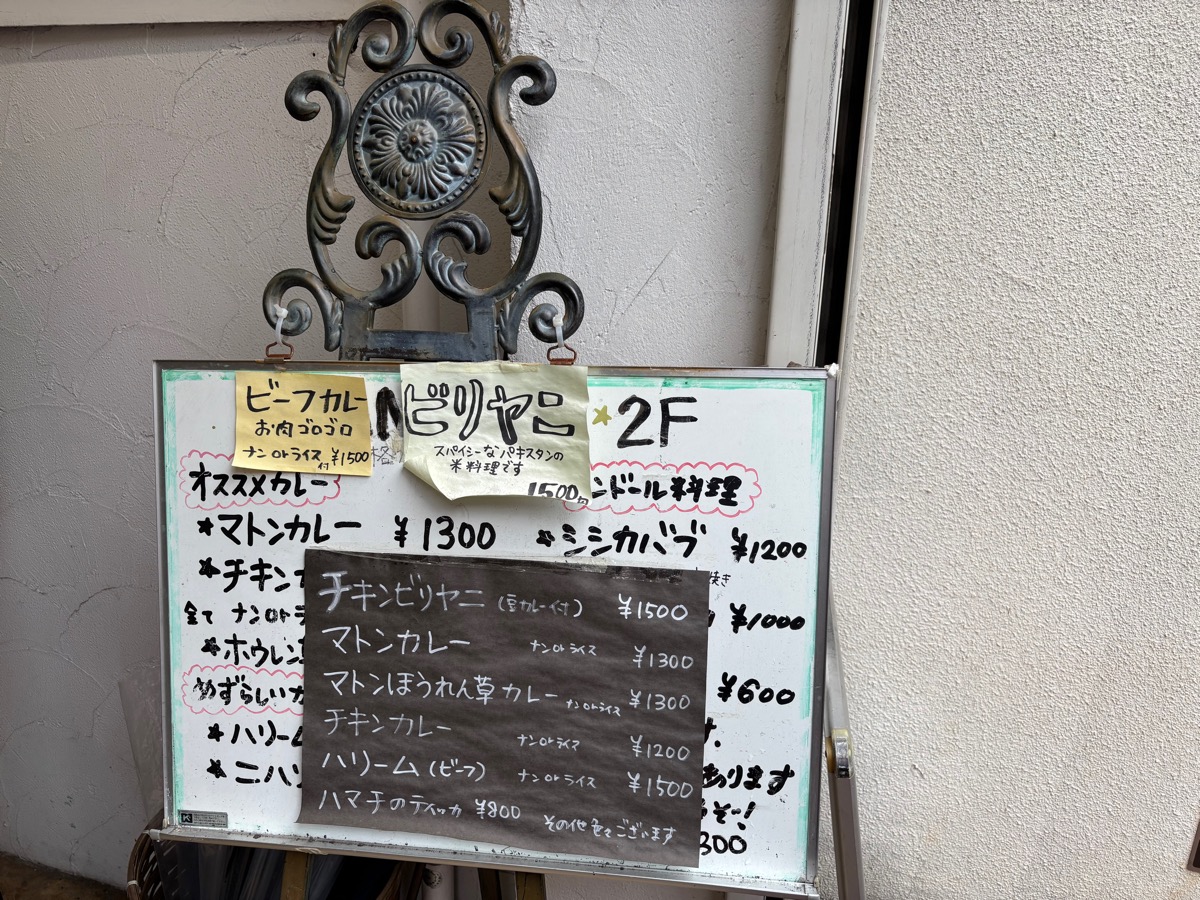 ビーフカレー
お肉ゴロゴロ
ナン or ライス付 ¥1500
ビリヤニ
スパイシーなパキスタンの
米料理です
1500円
N
2F
オススメカレー
ンドール料理
★マトンカレー ¥1300
★シシカバブ ¥1200
★チキン
焼き
全て ナン or ラ
¥1000
★ホウレン
¥600
めずらしいカ
★ハリーム
★ニハ
あります
300
チキンビリヤニ (豆カレー付) ¥1500
マトンカレー ナン or ライス ¥1300
マトンほうれん草カレー ナン or ライス ¥1300
チキンカレー ナン or ライス ¥1200
ハリーム (ビーフ) ナン or ライス ¥1500
ハマチのティッカ ¥800 その他色々ございます